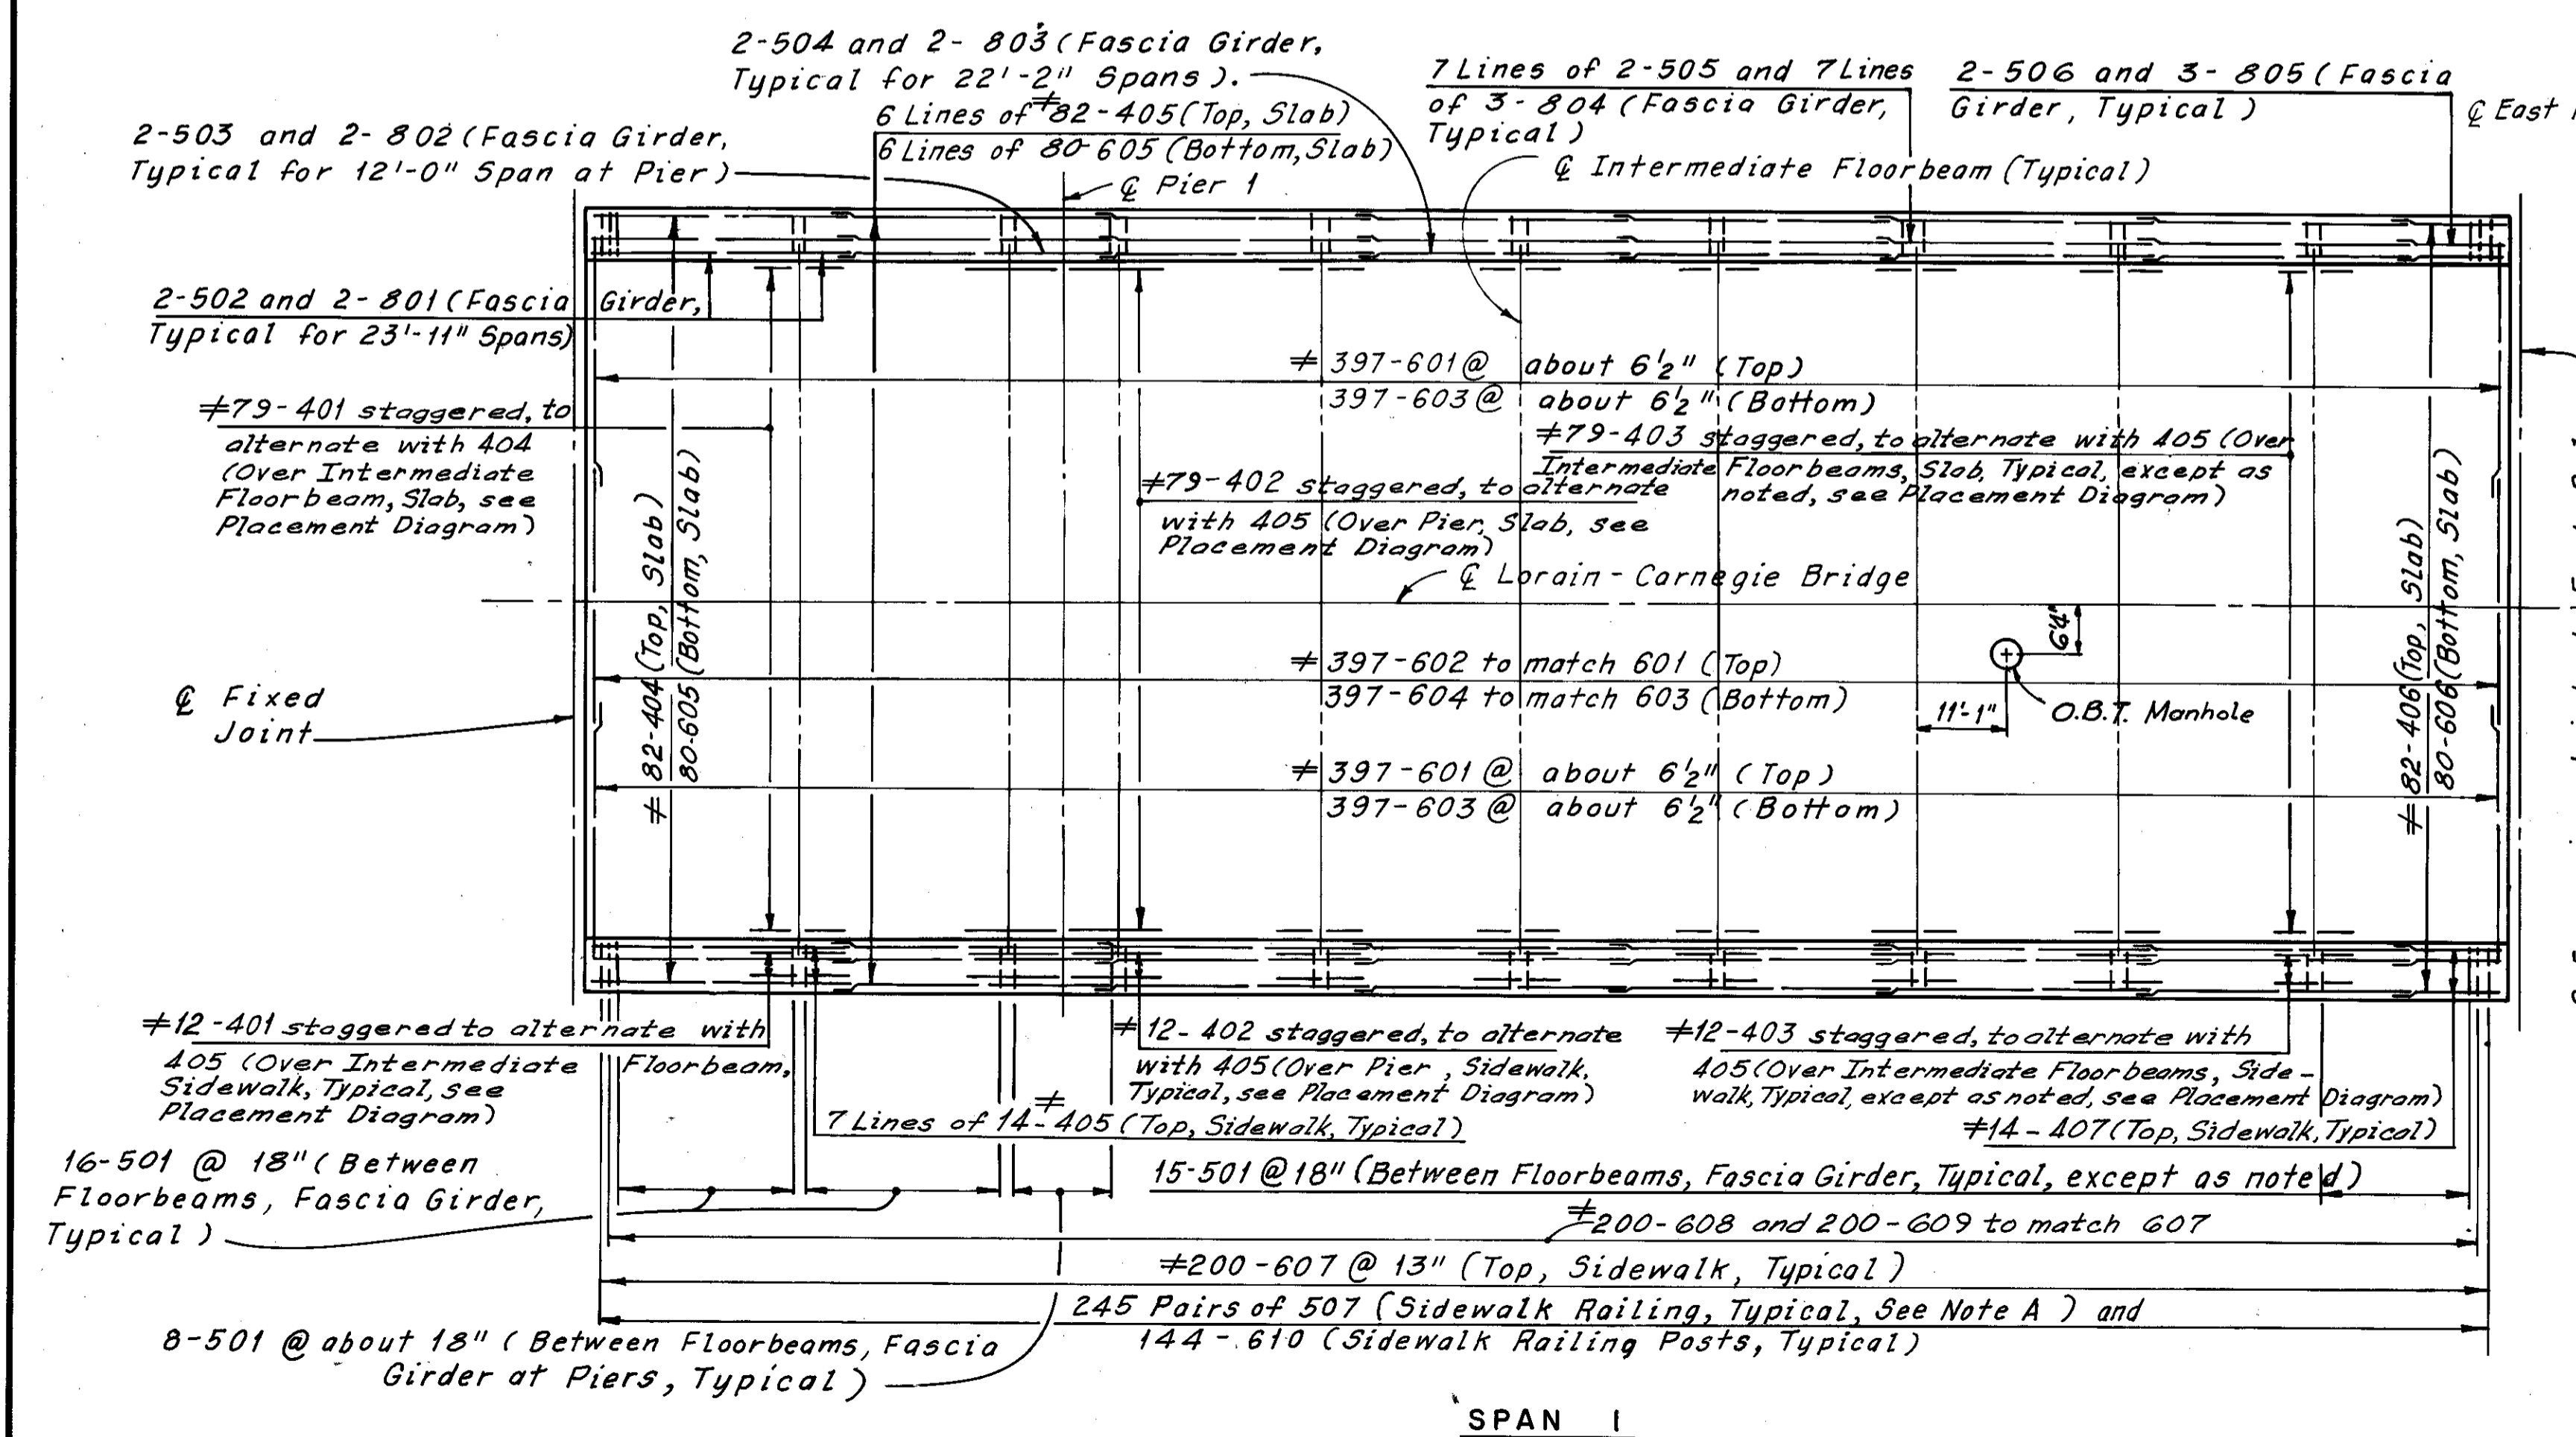 2-504 and 2-803 (Fascia Girder,
Typical for 22'-2" Spans).
7 Lines of 2-505 and 7 Lines
of 3-804 (Fascia Girder,
Typical)
2-506 and 3-805 (Fascia
Girder, Typical)
℄ East
6 Lines of ≠82-405 (Top, Slab)
6 Lines of 80-605 (Bottom, Slab)
2-503 and 2-802 (Fascia Girder,
Typical for 12'-0" Span at Pier)
℄ Pier 1
℄ Intermediate Floorbeam (Typical)
2-502 and 2-801 (Fascia Girder,
Typical for 23'-11" Spans)
≠ 397-601 @ about 6½" (Top)
397-603 @ about 6½" (Bottom)
≠79-401 staggered, to
alternate with 404
(Over Intermediate
Floorbeam, Slab, see
Placement Diagram)
≠79-403 staggered, to alternate with 405 (Over
Intermediate Floorbeams, Slab, Typical, except as
noted, see Placement Diagram)
≠79-402 staggered, to alternate
with 405 (Over Pier, Slab, see
Placement Diagram)
≠ 82-404 (Top, Slab)
80-605 (Bottom, Slab)
≠ 82-406 (Top, Slab)
80-606 (Bottom, Slab)
℄ Lorain-Carnegie Bridge
6'4"
≠ 397-602 to match 601 (Top)
397-604 to match 603 (Bottom)
11'-1"
O.B.T. Manhole
℄ Fixed
Joint
≠ 397-601 @ about 6½" (Top)
397-603 @ about 6½" (Bottom)
≠12-401 staggered to alternate with
405 (Over Intermediate Floorbeam,
Sidewalk, Typical, see
Placement Diagram)
≠12-402 staggered, to alternate
with 405 (Over Pier, Sidewalk,
Typical, see Placement Diagram)
≠12-403 staggered, to alternate with
405 (Over Intermediate Floorbeams, Side-
walk, Typical, except as noted, see Placement Diagram)
7 Lines of ≠14-405 (Top, Sidewalk, Typical)
≠14-407 (Top, Sidewalk, Typical)
16-501 @ 18" (Between
Floorbeams, Fascia Girder,
Typical)
15-501 @ 18" (Between Floorbeams, Fascia Girder, Typical, except as noted)
≠200-608 and 200-609 to match 607
≠200-607 @ 13" (Top, Sidewalk, Typical)
245 Pairs of 507 (Sidewalk Railing, Typical, See Note A) and
144-610 (Sidewalk Railing Posts, Typical)
8-501 @ about 18" (Between Floorbeams, Fascia
Girder at Piers, Typical)
SPAN 1